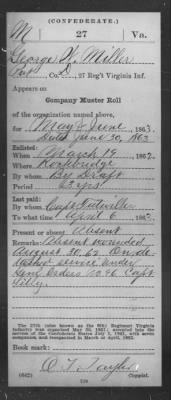 (CONFEDERATE.)
M 27 Va.
George K. Miller
Pvt, Co. D, 27 Reg't Virginia Inf.
Appears on
Company Muster Roll
of the organization named above,
for May & June, 1863.
Dated June 30, 1863
Enlisted:
When March 19, 1862.
Where Rockbridge
By whom By Draft
Period 3 yrs
Last paid:
By whom Capt.
To what time April 6, 186
Present or absent Absent
Remarks: Absent wounded
August 30, 62. On de-
tached service under
Genl Orders No 96 Capt
The 27th (also known as the 6th) Regiment Virginia
Infantry was organized May 30, 1861; accepted into the
service of the Confederate States July 1, 1861, with seven
companies and reorganized in March or April, 1862.
Book mark:
(642)
Copyist.